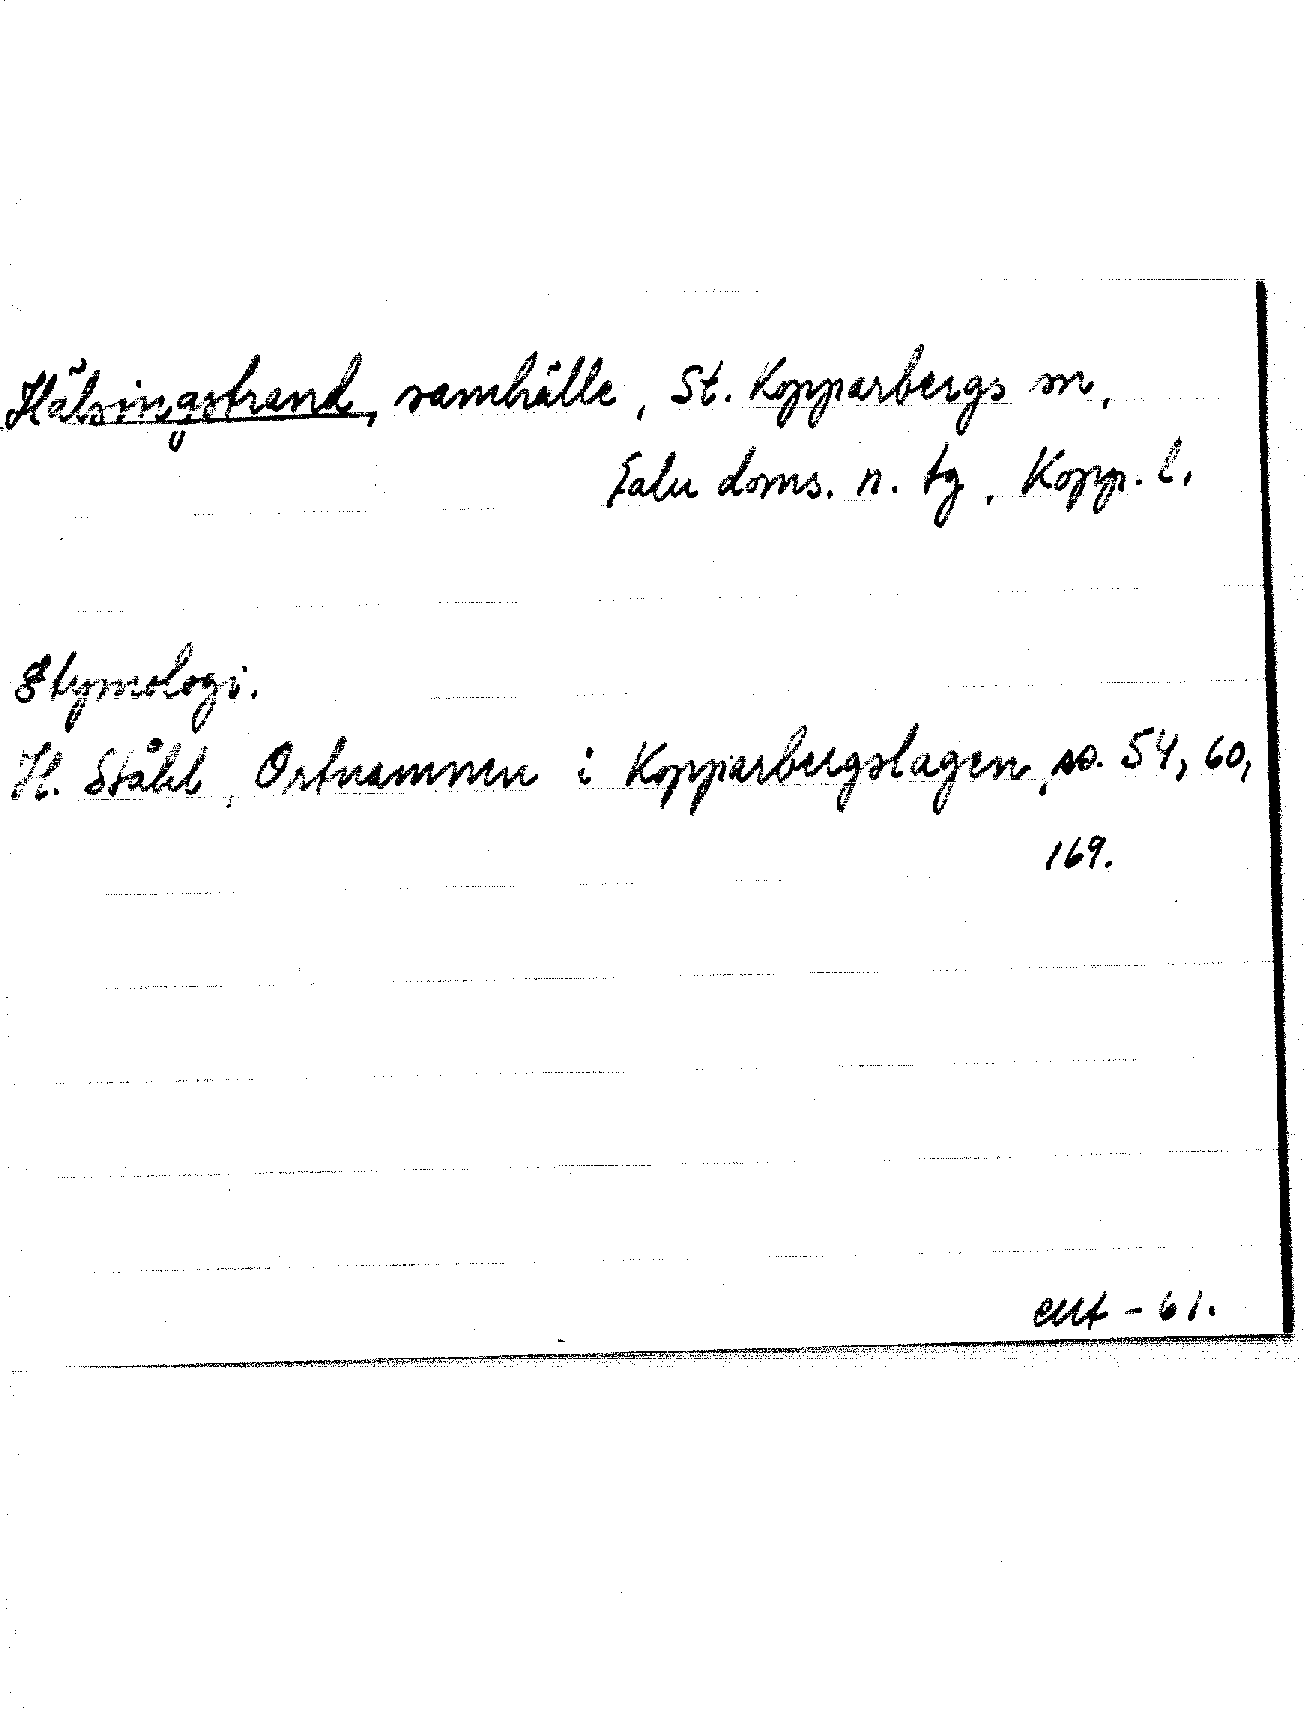 Hälsingstrand, samhälle, St. Kopparbergs sn,
Falu doms. n. tg, Kopp. l.
Etymologi.
H. Ståhl, Ortnamnen i Kopparbergslagen, ss. 54, 60,
169.
- 61.